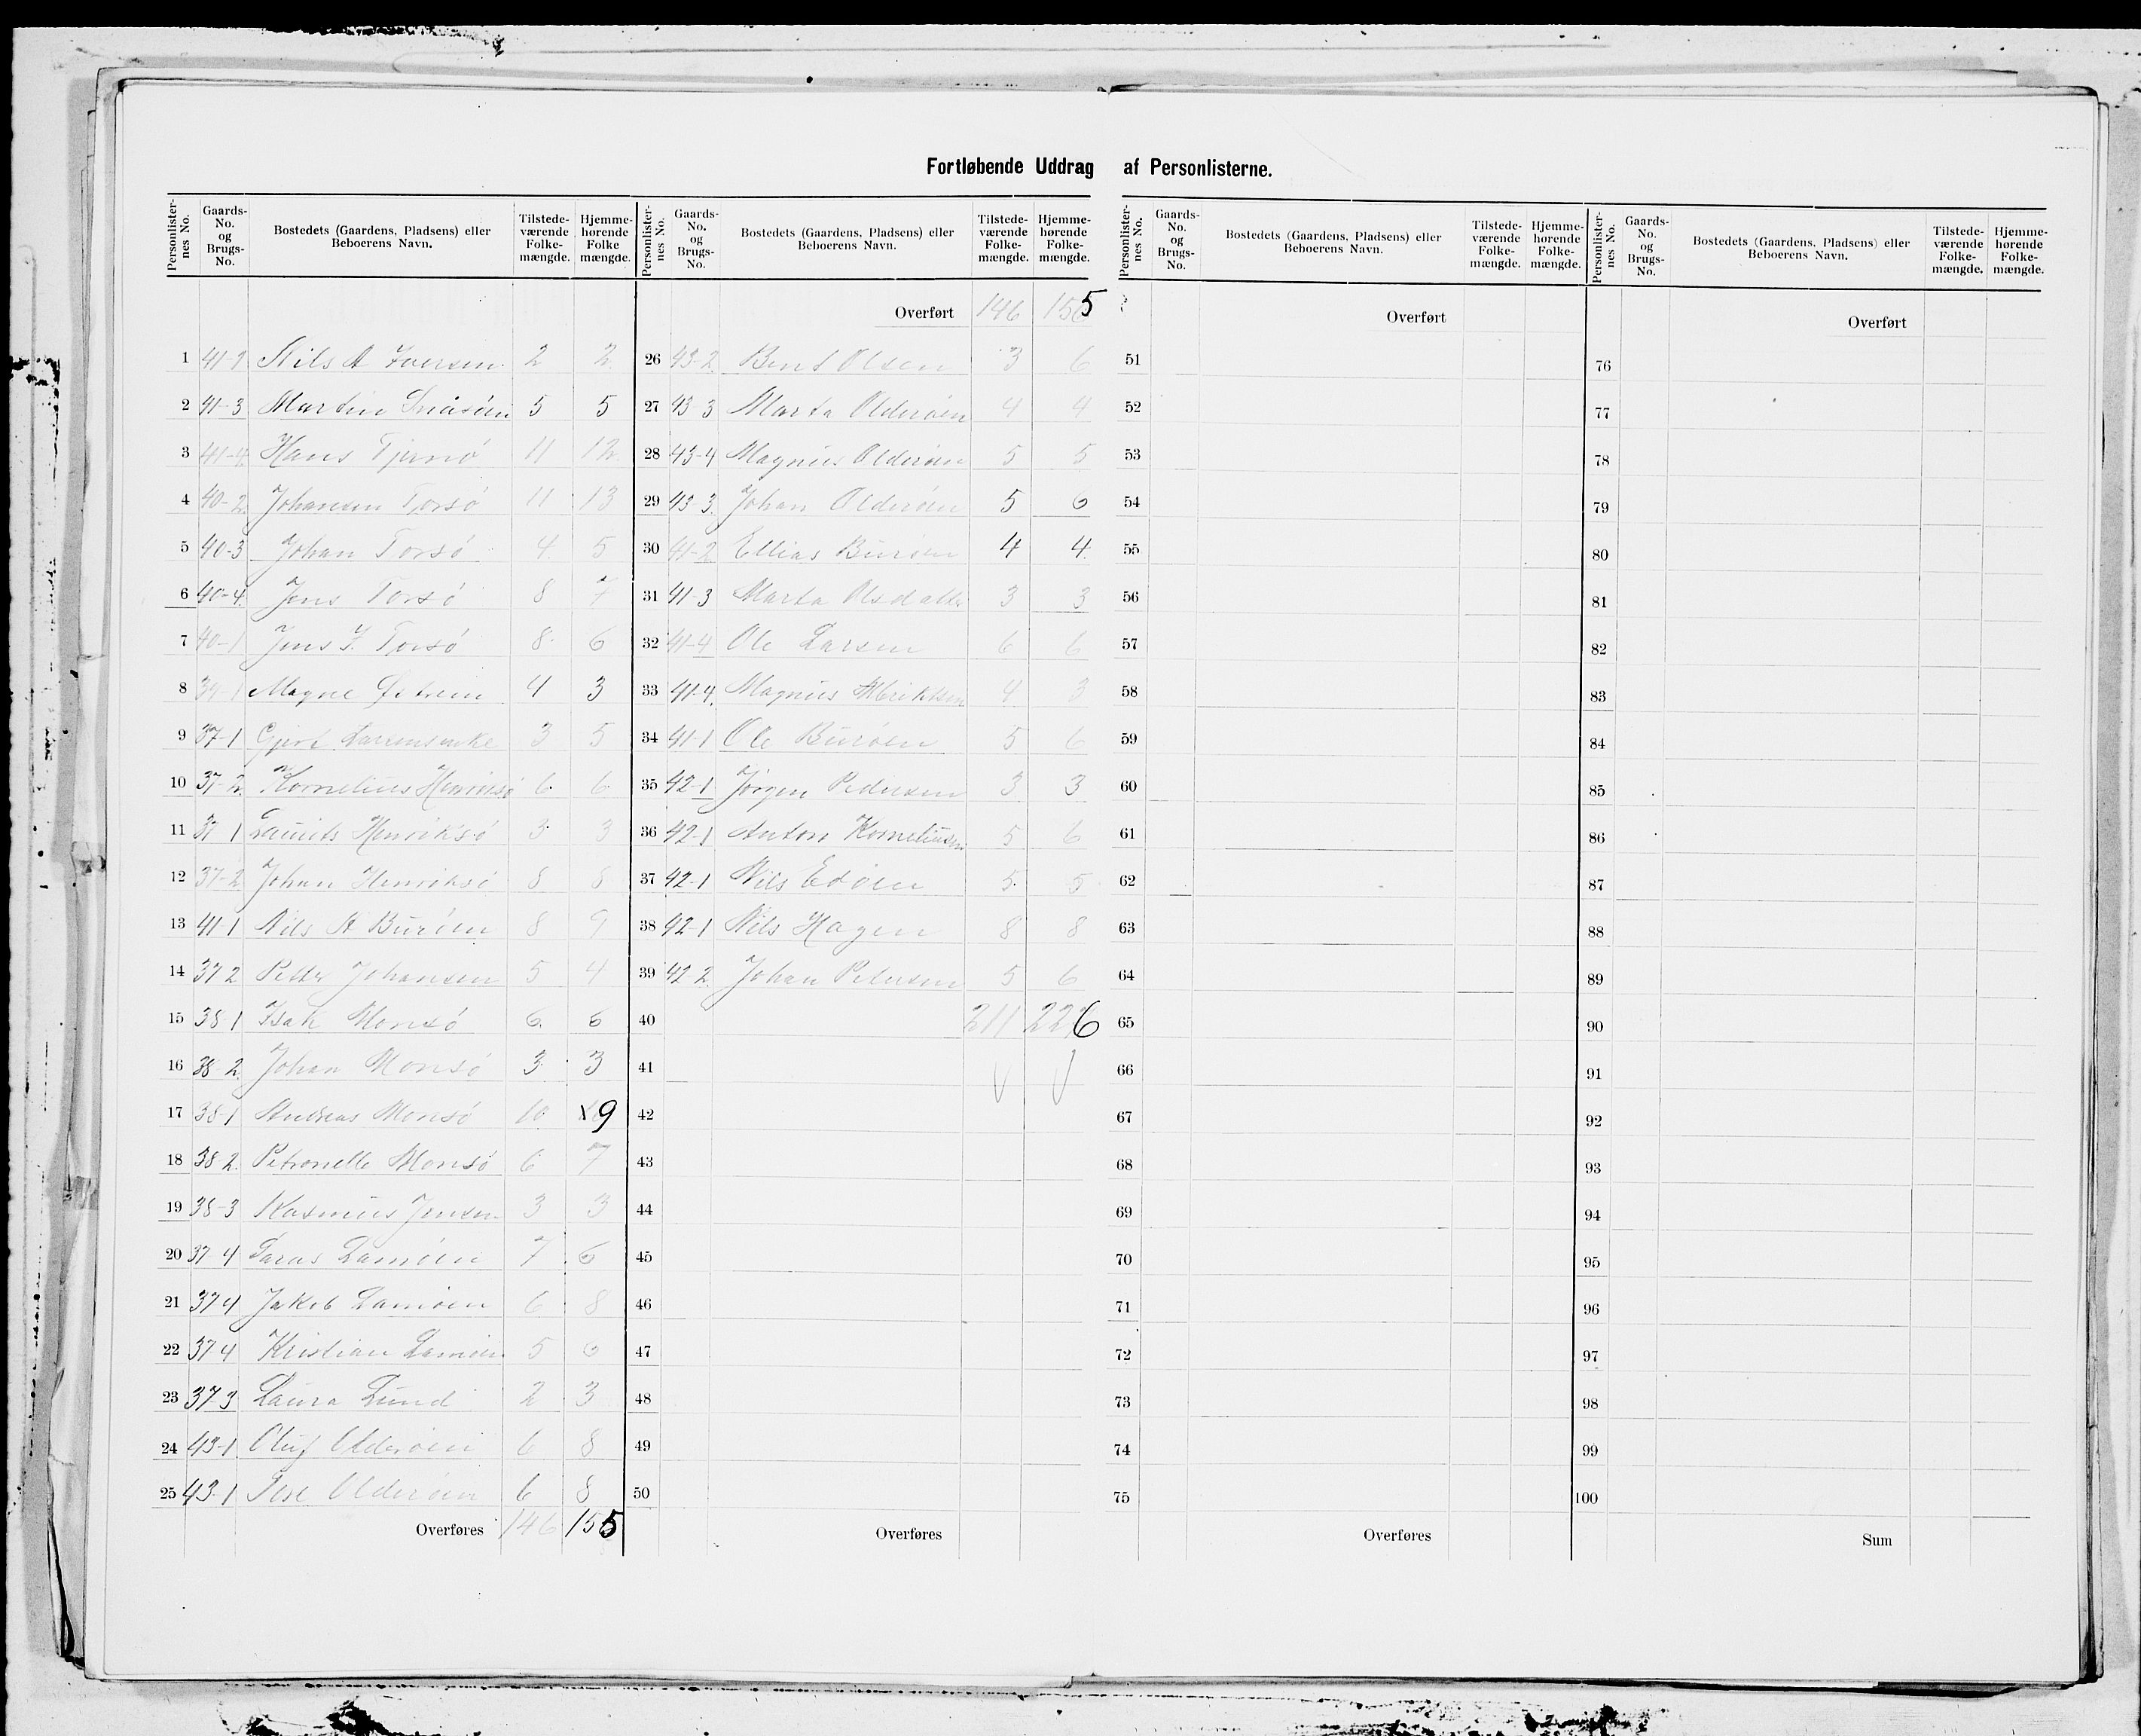 Fortløbende Uddrag af Personlisterne.
Personlisternes No. Gaards-No. og Brugs-No. Bostedets (Gaardens, Pladsens) eller Beboerens Navn. Tilstedeværende Folkemængde. Hjemmehørende Folkemængde.
1 41-1 Nils A Iversen 2 2
2 41-3 Martin 5 5
3 41-4 Hans 11 12
4 40-2 Johansen Torsö 11 13
5 40-3 Johan Torsö 4 5
6 40-4 Jens Torsö 8 7
7 40-1 Jens J. Torsö 8 6
8 39-1 Magne 4 3
9 37-1 Gjert 3 5
10 37-2 Kornelius Henriksö 6 6
11 37 1 Laurits Henriksö 3 3
12 37-2 Johan Henriksö 8 8
13 41-1 Nils A Buröen 8 9
14 37 2 Peder Johansen 5 4
15 38-1 Isak Monsö 6 6
16 38-2 Johan Monsö 3 3
17 38-1 Andreas Monsö 10 9
18 38-2 Petronelle Monsö 6 7
19 38-3 Rasmus Jensen 3 3
20 37 4 Lamöen 7 6
21 37 4 Jakob Lamöen 6 8
22 37-4 Kristian Lamöen 5 6
23 37-3 Laura Lund 2 3
24 43-1 Oluf Olderöen 6 8
25 43-1 Olderöen 6 8
Overføres 146 155
Personlisternes No. Gaards-No. og Brugs-No. Bostedets (Gaardens, Pladsens) eller Beboerens Navn. Tilstedeværende Folkemængde. Hjemmehørende Folkemængde.
Overført 146 155
26 43-2 Bent Olsen 3 6
27 43 3 Marta Olderöen 4 4
28 43-4 Magnus Olderöen 5 5
29 43-3 Johan Olderöen 5 6
30 41-2 Ellias Buröen 4 4
31 41-3 Marta Olsdatter 3 3
32 41-4 Ole Larsen 6 6
33 41-4 Magnus 4 3
34 41-1 Ole Buröen 5 6
35 42-1 Jörgen Pedersen 3 3
36 42-1 Anton Korneliusen 5 6
37 42-1 Nils Edöen 5 5
38 42-1 Nils Hagen 8 8
39 42 2 Johan Pedersen 5 6
40 211 226
41
42
43
44
45
46
47
48
49
50
Overføres
Personlisternes No. Gaards-No. og Brugs-No. Bostedets (Gaardens, Pladsens) eller Beboerens Navn. Tilstedeværende Folkemængde. Hjemmehørende Folkemængde.
Overført
51
52
53
54
55
56
57
58
59
60
61
62
63
64
65
66
67
68
69
70
71
72
73
74
75
Overføres
Personlisternes No. Gaards-No. og Brugs-No. Bostedets (Gaardens, Pladsens) eller Beboerens Navn. Tilstedeværende Folkemængde. Hjemmehørende Folkemængde.
Overført
76
77
78
79
80
81
82
83
84
85
86
87
88
89
90
91
92
93
94
95
96
97
98
99
100
Sum